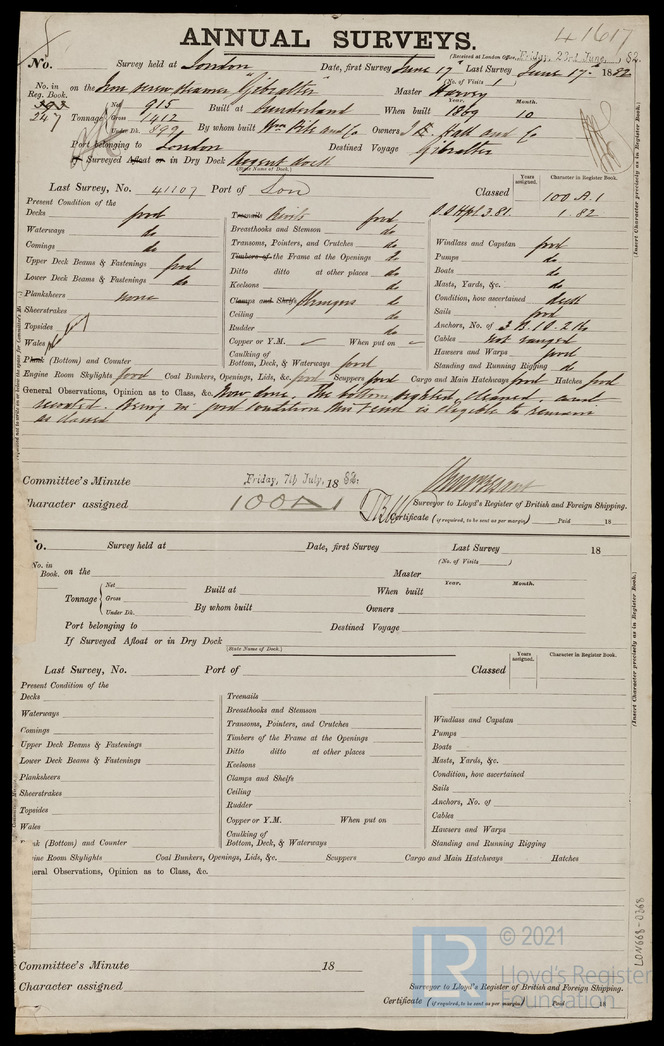 41617
ANNUAL SURVEYS.
(Received at London Office, Friday, 23rd June, 82.
No. Survey held at London Date, first Survey June 17 Last Survey June 17 1882
(No. of Visits 1)
No. in Reg. Book. on the Iron screw steamer "Gibraltar" Master Harvey
393
247 Tonnage Net 915 Built at Sunderland When built Year. 1869 Month. 10
Gross 1412
Under Dk. 899 By whom built Wm Pile and Co Owners J. Hall and Co
Port belonging to London Destined Voyage Gibraltar
If Surveyed Afloat or in Dry Dock Regent dock
(State Name of Dock.)
Last Survey, No. 41107 Port of Lon Classed Years assigned. Character in Register Book. 100 A.1
S.S. 3.81. 1.82
Present Condition of the
Decks good Treenails Rivets good
Waterways do Breasthooks and Stemson do
Comings do Transoms, Pointers, and Crutches do Windlass and Capstan good
Upper Deck Beams & Fastenings good Timbers of the Frame at the Openings do Pumps do
Lower Deck Beams & Fastenings do Ditto ditto at other places do Boats do
Planksheers none Keelsons do Masts, Yards, &c. do
Sheerstrakes Clamps and Shelfs Stringers do Condition, how ascertained deck
Topsides Ceiling do Sails good
Wales Rudder do Anchors, No. of 3 B. 1 S. 2 K.
Copper or Y.M. When put on Cables not ranged
Plank (Bottom) and Counter Caulking of Bottom, Deck, & Waterways good Hawsers and Warps good
Standing and Running Rigging do
Engine Room Skylights good Coal Bunkers, Openings, Lids, &c. good Scuppers good Cargo and Main Hatchways good Hatches good
General Observations, Opinion as to Class, &c. Now done. The bottom sighted, cleaned, and
recoated. Being in good condition this vessel is eligible to remain
as classed
Committee's Minute Friday, 7th July, 1882.
Character assigned 100A1 Surveyor to Lloyd's Register of British and Foreign Shipping.
Certificate (if required, to be sent as per margin) Paid 18
(Insert Character precisely as in Register Book.)
No. Survey held at Date, first Survey Last Survey 18
(No. of Visits )
No. in Book. on the Master
Tonnage Net Built at When built Year. Month.
Gross
Under Dk. By whom built Owners
Port belonging to Destined Voyage
If Surveyed Afloat or in Dry Dock
(State Name of Dock.)
Last Survey, No. Port of Classed Years assigned. Character in Register Book.
Present Condition of the
Decks Treenails
Waterways Breasthooks and Stemson
Comings Transoms, Pointers, and Crutches Windlass and Capstan
Upper Deck Beams & Fastenings Timbers of the Frame at the Openings Pumps
Lower Deck Beams & Fastenings Ditto ditto at other places Boats
Planksheers Keelsons Masts, Yards, &c.
Sheerstrakes Clamps and Shelfs Condition, how ascertained
Topsides Ceiling Sails
Wales Rudder Anchors, No. of
Copper or Y.M. When put on Cables
(Bottom) and Counter Caulking of Bottom, Deck, & Waterways Hawsers and Warps
Standing and Running Rigging
Engine Room Skylights Coal Bunkers, Openings, Lids, &c. Scuppers Cargo and Main Hatchways Hatches
General Observations, Opinion as to Class, &c.
(Insert Character precisely as in Register Book.)
Committee's Minute 18
Character assigned Surveyor to Lloyd's Register of British and Foreign Shipping.
Certificate (if required, to be sent as per margin) Paid 18
LON668-0368
© 2021
Lloyd's Register
Foundation